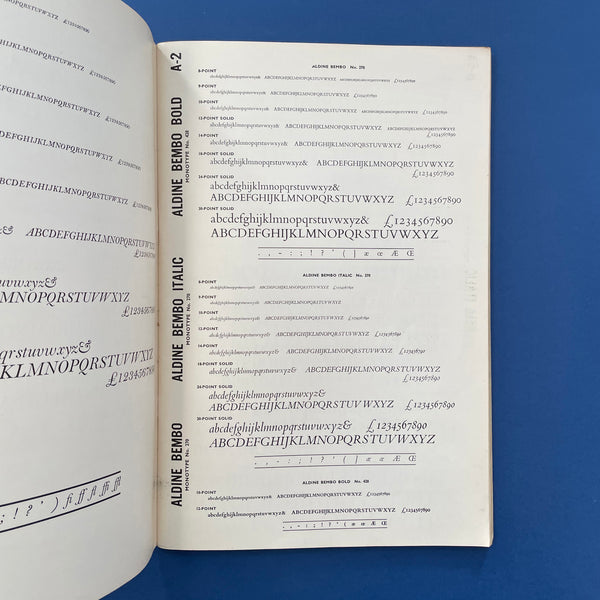 £1234567890
MNOPQRSTUVWXYZ
£1234567890
LMNOPQRSTUVWXYZ
£1234567890
HIJKLMNOPQRSTUVWXYZ
£1234567890
& ABCDEFGHIJKLMNOPQRSTUVWXYZ
£1234567890
pqrstuvwxyz&
MNOPQRSTUVWXYZ
£1234567890
pqrstuvwxyz&
KLMNOPQRSTUVWXYZ
£1234567890
; ! ? ' ) fi ff fl ffi ffl
A-2
ALDINE BEMBO BOLD
MONOTYPE No. 428
ALDINE BEMBO ITALIC
MONOTYPE No. 270
ALDINE BEMBO
MONOTYPE No. 270
ALDINE BEMBO No. 270
8-POINT
abcdefghijklmnopqrstuvwxyz& ABCDEFGHIJKLMNOPQRSTUVWXYZ ABCDEFGHIJKLMNOPQRSTUVWXYZ £1234567890
9-POINT
abcdefghijklmnopqrstuvwxyz& ABCDEFGHIJKLMNOPQRSTUVWXYZ ABCDEFGHIJKLMNOPQRSTUVWXYZ £1234567890
10-POINT
abcdefghijklmnopqrstuvwxyz& ABCDEFGHIJKLMNOPQRSTUVWXYZ ABCDEFGHIJKLMNOPQRSTUVWXYZ £1234567890
12-POINT
abcdefghijklmnopqrstuvwxyz& ABCDEFGHIJKLMNOPQRSTUVWXYZ ABCDEFGHIJKLMNOPQRSTUVWXYZ £1234567890
14-POINT
abcdefghijklmnopqrstuvwxyz& ABCDEFGHIJKLMNOPQRSTUVWXYZ £1234567890
18-POINT SOLID
abcdefghijklmnopqrstuvwxyz& ABCDEFGHIJKLMNOPQRSTUVWXYZ
£1234567890
24-POINT SOLID
abcdefghijklmnopqrstuvwxyz&
ABCDEFGHIJKLMNOPQRSTUVWXYZ £1234567890
30-POINT SOLID
abcdefghijklmnopqrstuvwxyz& £1234567890
ABCDEFGHIJKLMNOPQRSTUVWXYZ
. , - : ; ! ? ' ( | æ œ Æ Œ
ALDINE BEMBO ITALIC No. 270
8-POINT
abcdefghijklmnopqrstuvwxyz& ABCDEFGHIJKLMNOPQRSTUVWXYZ £1234567890
9-POINT
abcdefghijklmnopqrstuvwxyz& ABCDEFGHIJKLMNOPQRSTUVWXYZ £1234567890
10-POINT
abcdefghijklmnopqrstuvwxyz& ABCDEFGHIJKLMNOPQRSTUVWXYZ £1234567890
12-POINT
abcdefghijklmnopqrstuvwxyz& ABCDEFGHIJKLMNOPQRSTUVWXYZ £1234567890
14-POINT
abcdefghijklmnopqrstuvwxyz& ABCDEFGHIJKLMNOPQRSTUVWXYZ £1234567890
18-POINT SOLID
abcdefghijklmnopqrstuvwxyz& ABCDEFGHIJKLMNOPQRSTUVWXYZ £1234567890
24-POINT SOLID
abcdefghijklmnopqrstuvwxyz&
ABCDEFGHIJKLMNOPQRSTUVWXYZ £1234567890
30-POINT SOLID
abcdefghijklmnopqrstuvwxyz& £1234567890
ABCDEFGHIJKLMNOPQRSTUVWXYZ
. , - : ; ! ? ' ( | æ œ Æ Œ
ALDINE BEMBO BOLD No. 428
10-POINT
abcdefghijklmnopqrstuvwxyz& ABCDEFGHIJKLMNOPQRSTUVWXYZ £1234567890
12-POINT
abcdefghijklmnopqrstuvwxyz& ABCDEFGHIJKLMNOPQRSTUVWXYZ £1234567890
. , - : ; ! ? ' ( | æ œ Æ Œ